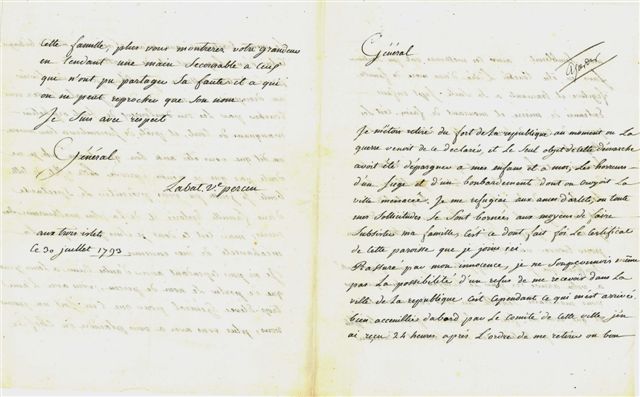 Cette famille, plus vous montrerez votre grandeur
en tendant une main secourable a ceux
que n'ont pu partager sa faute et a qui
on ne peut reprocher que son nom
Je suis avec respect
Général
Labat V.e percin
aux trois islets
Ce 30 juillet 1793
Général
Je m'étois retiré du fort de la republique au moment ou La
guerre venoit de ce declarée, et le seul objet de cette demarche
avoit été d'épargner a mes enfans et a moi, les horreurs
d'un siege et d'un bombardement dont on croyoit la
ville menacée. Je me refugiai aux ances d'arlets, ou toute
mes sollicitudes se sont bornées aux moyens de faire
subsister ma famille, c'est ce dont fait foi le certificat
de cette paroisse que je joins ici.
Rassuré par mon innocence, je ne soupçonnois même
pas la possibilité d'un refus de me recevoir dans la
ville de La republique c'est cependant ce qui m'est arrivée
bien accueillie d'abord par le comité de cette ville, j'en
ai reçu 24 heures après L'ordre de me retirer ou bon